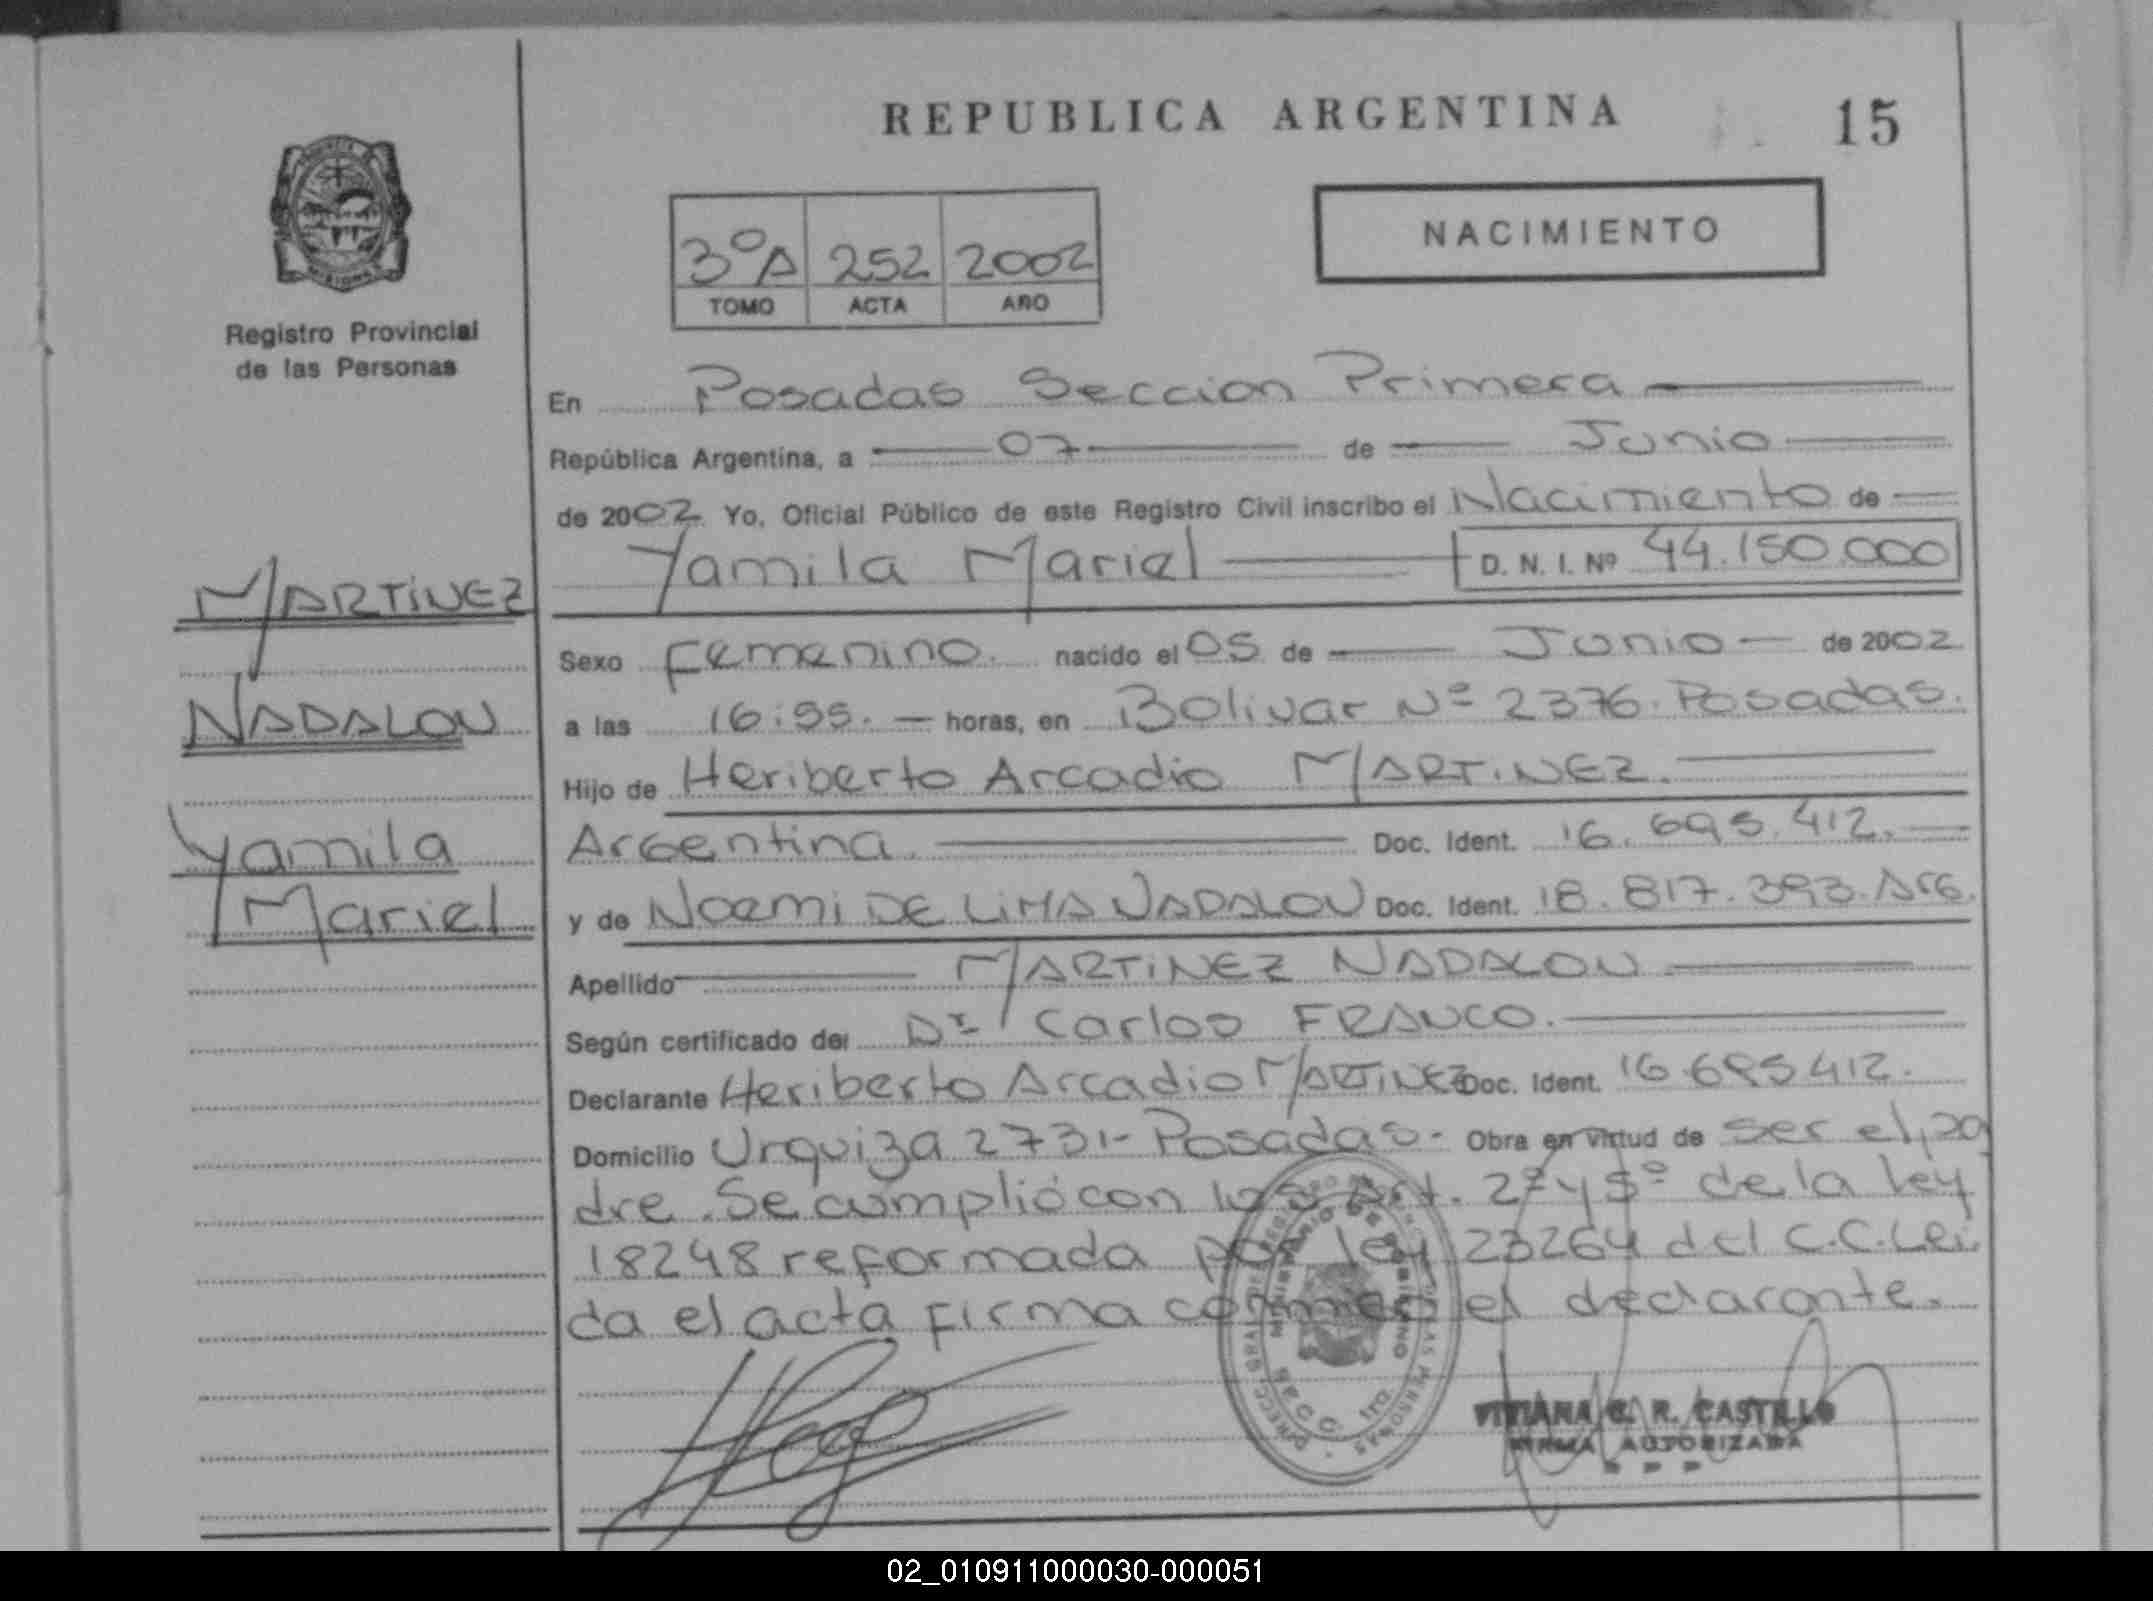 REPUBLICA ARGENTINA
15
NACIMIENTO
3º A 252 2002
TOMO ACTA AÑO
Registro Provincial
de las Personas
En Posadas Seccion Primera
República Argentina, a 07 de Junio
de 2002 Yo, Oficial Público de este Registro Civil inscribo el Nacimiento de
Yamila Mariel D. N. I. Nº 44.150.000
MARTINEZ
NADALON
Yamila
Mariel
Sexo Femenino. nacido el 05 de Junio de 2002
a las 16:55. horas, en Bolivar Nº 2376. Posadas.
Hijo de Heriberto Arcadio MARTINEZ.
Argentina. Doc. Ident. 16.695.412.
y de Noemi DE LIMA NADALON Doc. Ident. 18.817.393. Arg.
Apellido MARTINEZ NADALON
Según certificado de: Dr Carlos FRANCO.
Declarante Heriberto Arcadio MARTINEZ Doc. Ident. 16.695412.
Domicilio Urquiza 2731- Posadas- Obra en virtud de ser el pa
dre. Se cumplió con los Art. 2º y 5º de la ley
18248 reformada por ley 23264 del C.C. Lei
da el acta firma conmigo el declarante.
VIVIANA C. R. CASTILLO
FIRMA AUTORIZADA
02_010911000030-000051